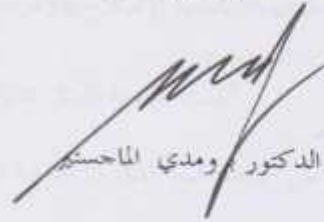 الدكتور رومدي الماجستير